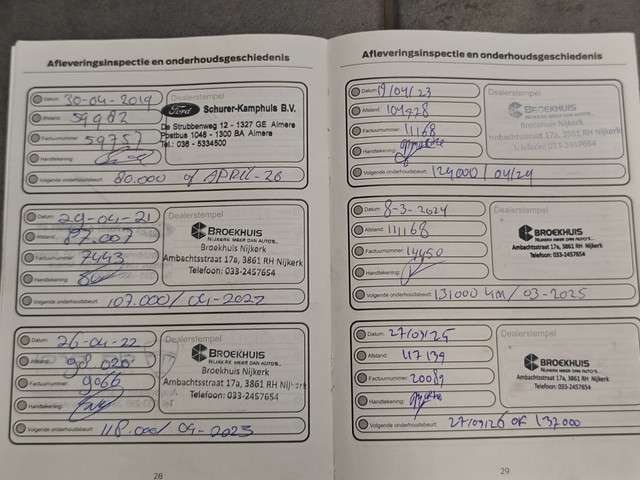 Afleveringsinspectie en onderhoudsgeschiedenis
Datum: 30-04-2019
Afstand: 59982
Factuurnummer: 59757
Handtekening:
Volgende onderhoudsbeurt: 80.000 of APRIL-20
Dealerstempel
Ford Schurer-Kamphuis B.V.
De Strubbenweg 12 - 1327 GE Almere
Postbus 1048 - 1300 BA Almere
Tel.: 036 - 5334500
Datum: 29-04-21
Afstand: 87.007
Factuurnummer: 7443
Handtekening:
Volgende onderhoudsbeurt: 107.000/04-2022
Dealerstempel
BROEKHUIS
NIJKERK MEER DAN AUTO'S...
Broekhuis Nijkerk
Ambachtsstraat 17a, 3861 RH Nijkerk
Telefoon: 033-2457654
Datum: 26-04-22
Afstand: 98.020
Factuurnummer: 9066
Handtekening:
Volgende onderhoudsbeurt: 118.000/04-2023
Dealerstempel
BROEKHUIS
NIJKERK MEER DAN AUTO'S...
Broekhuis Nijkerk
Ambachtsstraat 17a, 3861 RH Nijkerk
Telefoon: 033-2457654
28
Afleveringsinspectie en onderhoudsgeschiedenis
Datum: 19/04/23
Afstand:
Factuurnummer: 11168
Handtekening:
Volgende onderhoudsbeurt: 124000/04/24
Dealerstempel
BROEKHUIS
Broekhuis Nijkerk
Ambachtsstraat 17a, 3861 RH Nijkerk
Telefoon: 033-2457654
Datum: 8-3-2024
Afstand: 111168
Factuurnummer: 14450
Handtekening:
Volgende onderhoudsbeurt: 131000 KM/03-2025
Dealerstempel
BROEKHUIS
NIJKERK MEER DAN AUTO'S...
Ambachtsstraat 17a, 3861 RH Nijkerk
Telefoon: 033-2457654
Datum: 27/03/25
Afstand: 117139
Factuurnummer: 20089
Handtekening:
Volgende onderhoudsbeurt: 27/03/26 OF 137000
Dealerstempel
BROEKHUIS
NIJKERK MEER DAN AUTO'S...
Ambachtsstraat 17a, 3861 RH Nijkerk
Telefoon: 033-2457654
29